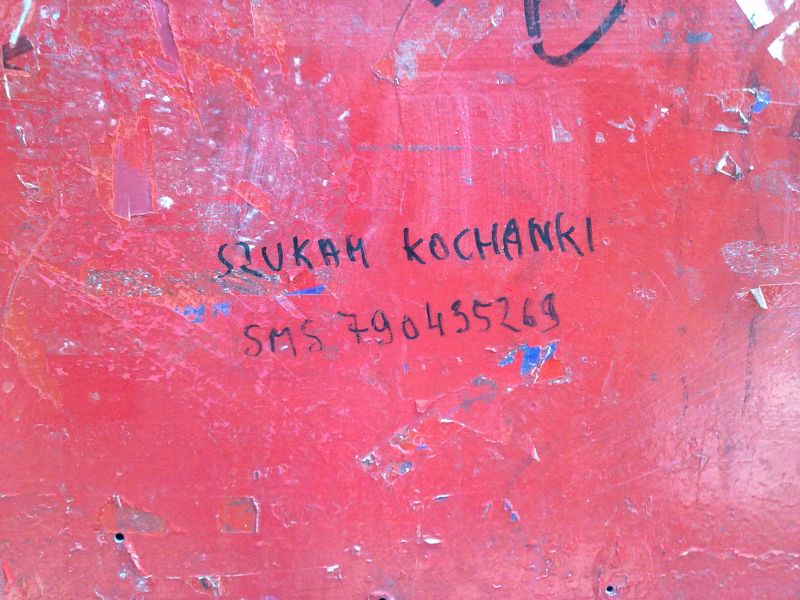 SZUKAM KOCHANKI
SMS 790495269